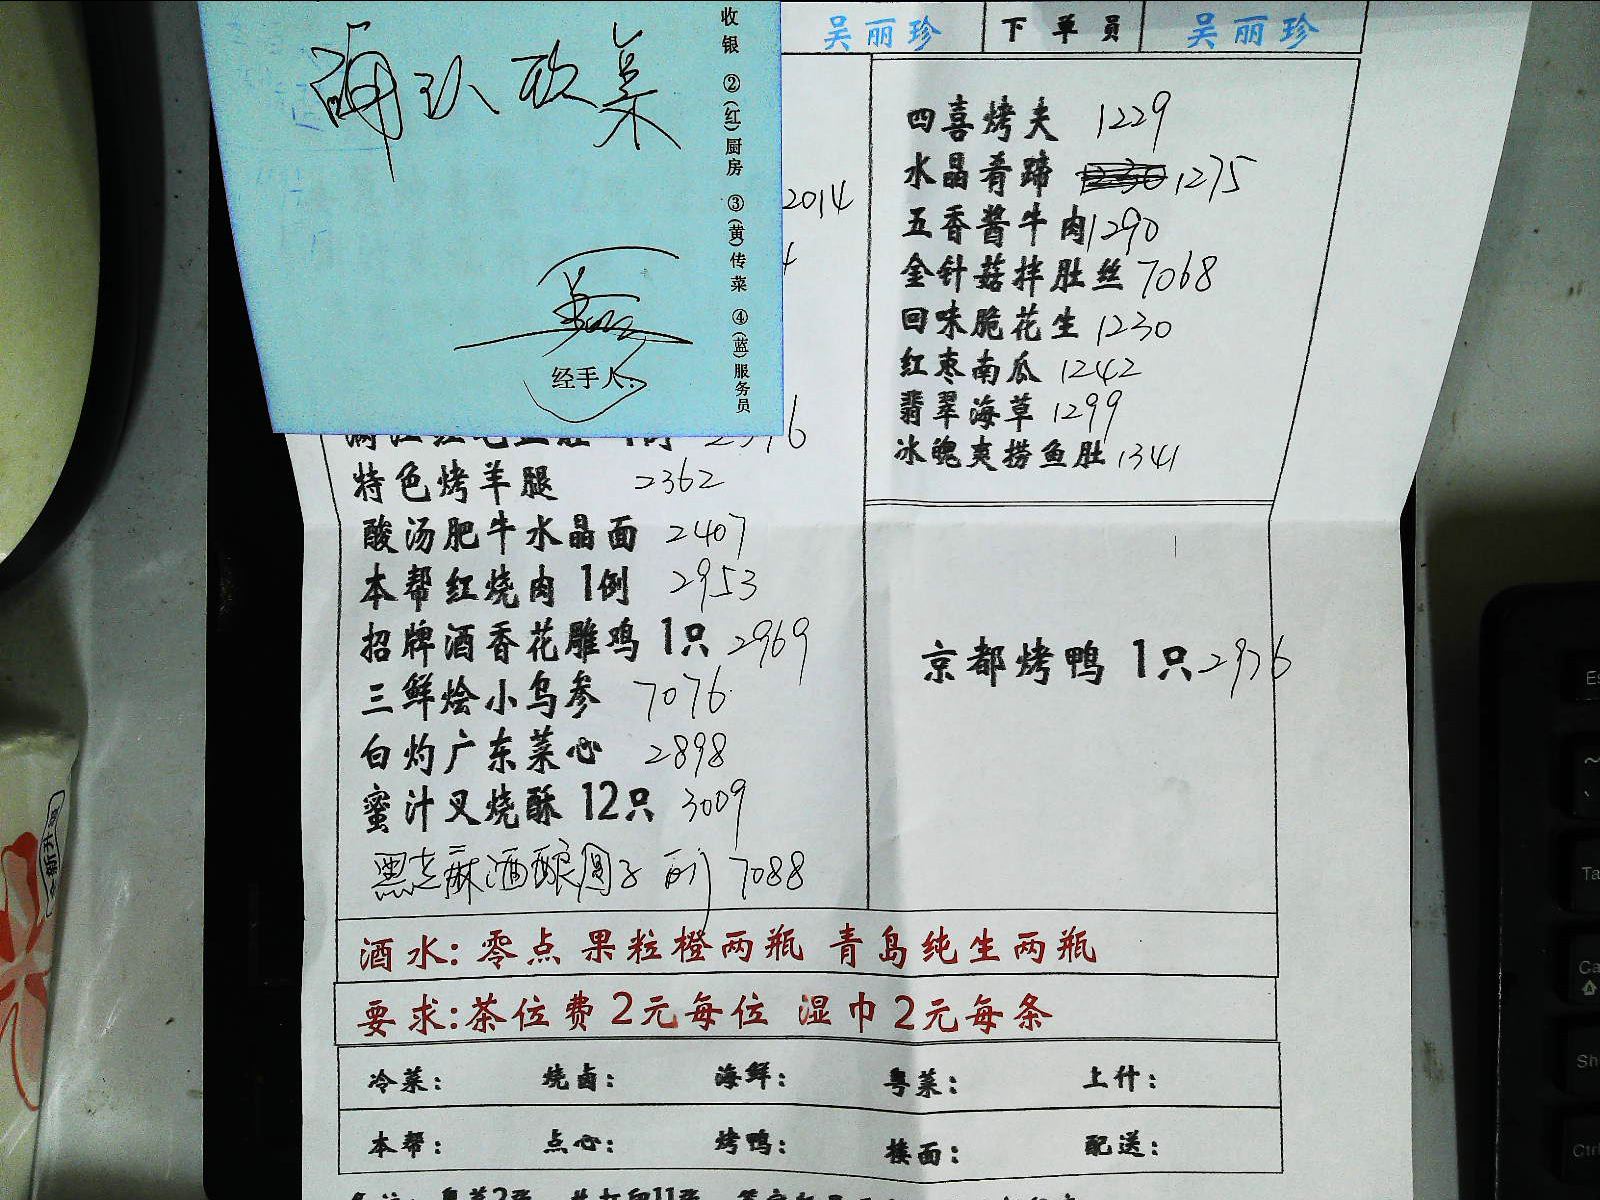 收银 ②(红)厨房 ③(黄)传菜 ④(蓝)服务员
确认
菜
经手人:
吴丽珍 下单员 吴丽珍
2014
四喜烤夫 1229
水晶肴蹄 1275
五香酱牛肉 1290
金针菇拌肚丝 7068
回味脆花生 1230
红枣南瓜 1242
翡翠海草 1299
冰魄爽捞鱼肚 1341
特色烤羊腿 2362
酸汤肥牛水晶面 2407
本帮红烧肉 1例 2953
招牌酒香花雕鸡 1只 2969
三鲜烩小乌参 7076
白灼广东菜心 2898
蜜汁叉烧酥 12只 3009
黑芝麻酒酿圆子 7088
京都烤鸭 1只 2976
酒水: 零点 果粒橙两瓶 青岛纯生两瓶
要求:茶位费2元每位 湿巾2元每条
冷菜: 烧卤: 海鲜: 粤菜: 上什:
本帮: 点心: 烤鸭: 接面: 配送: